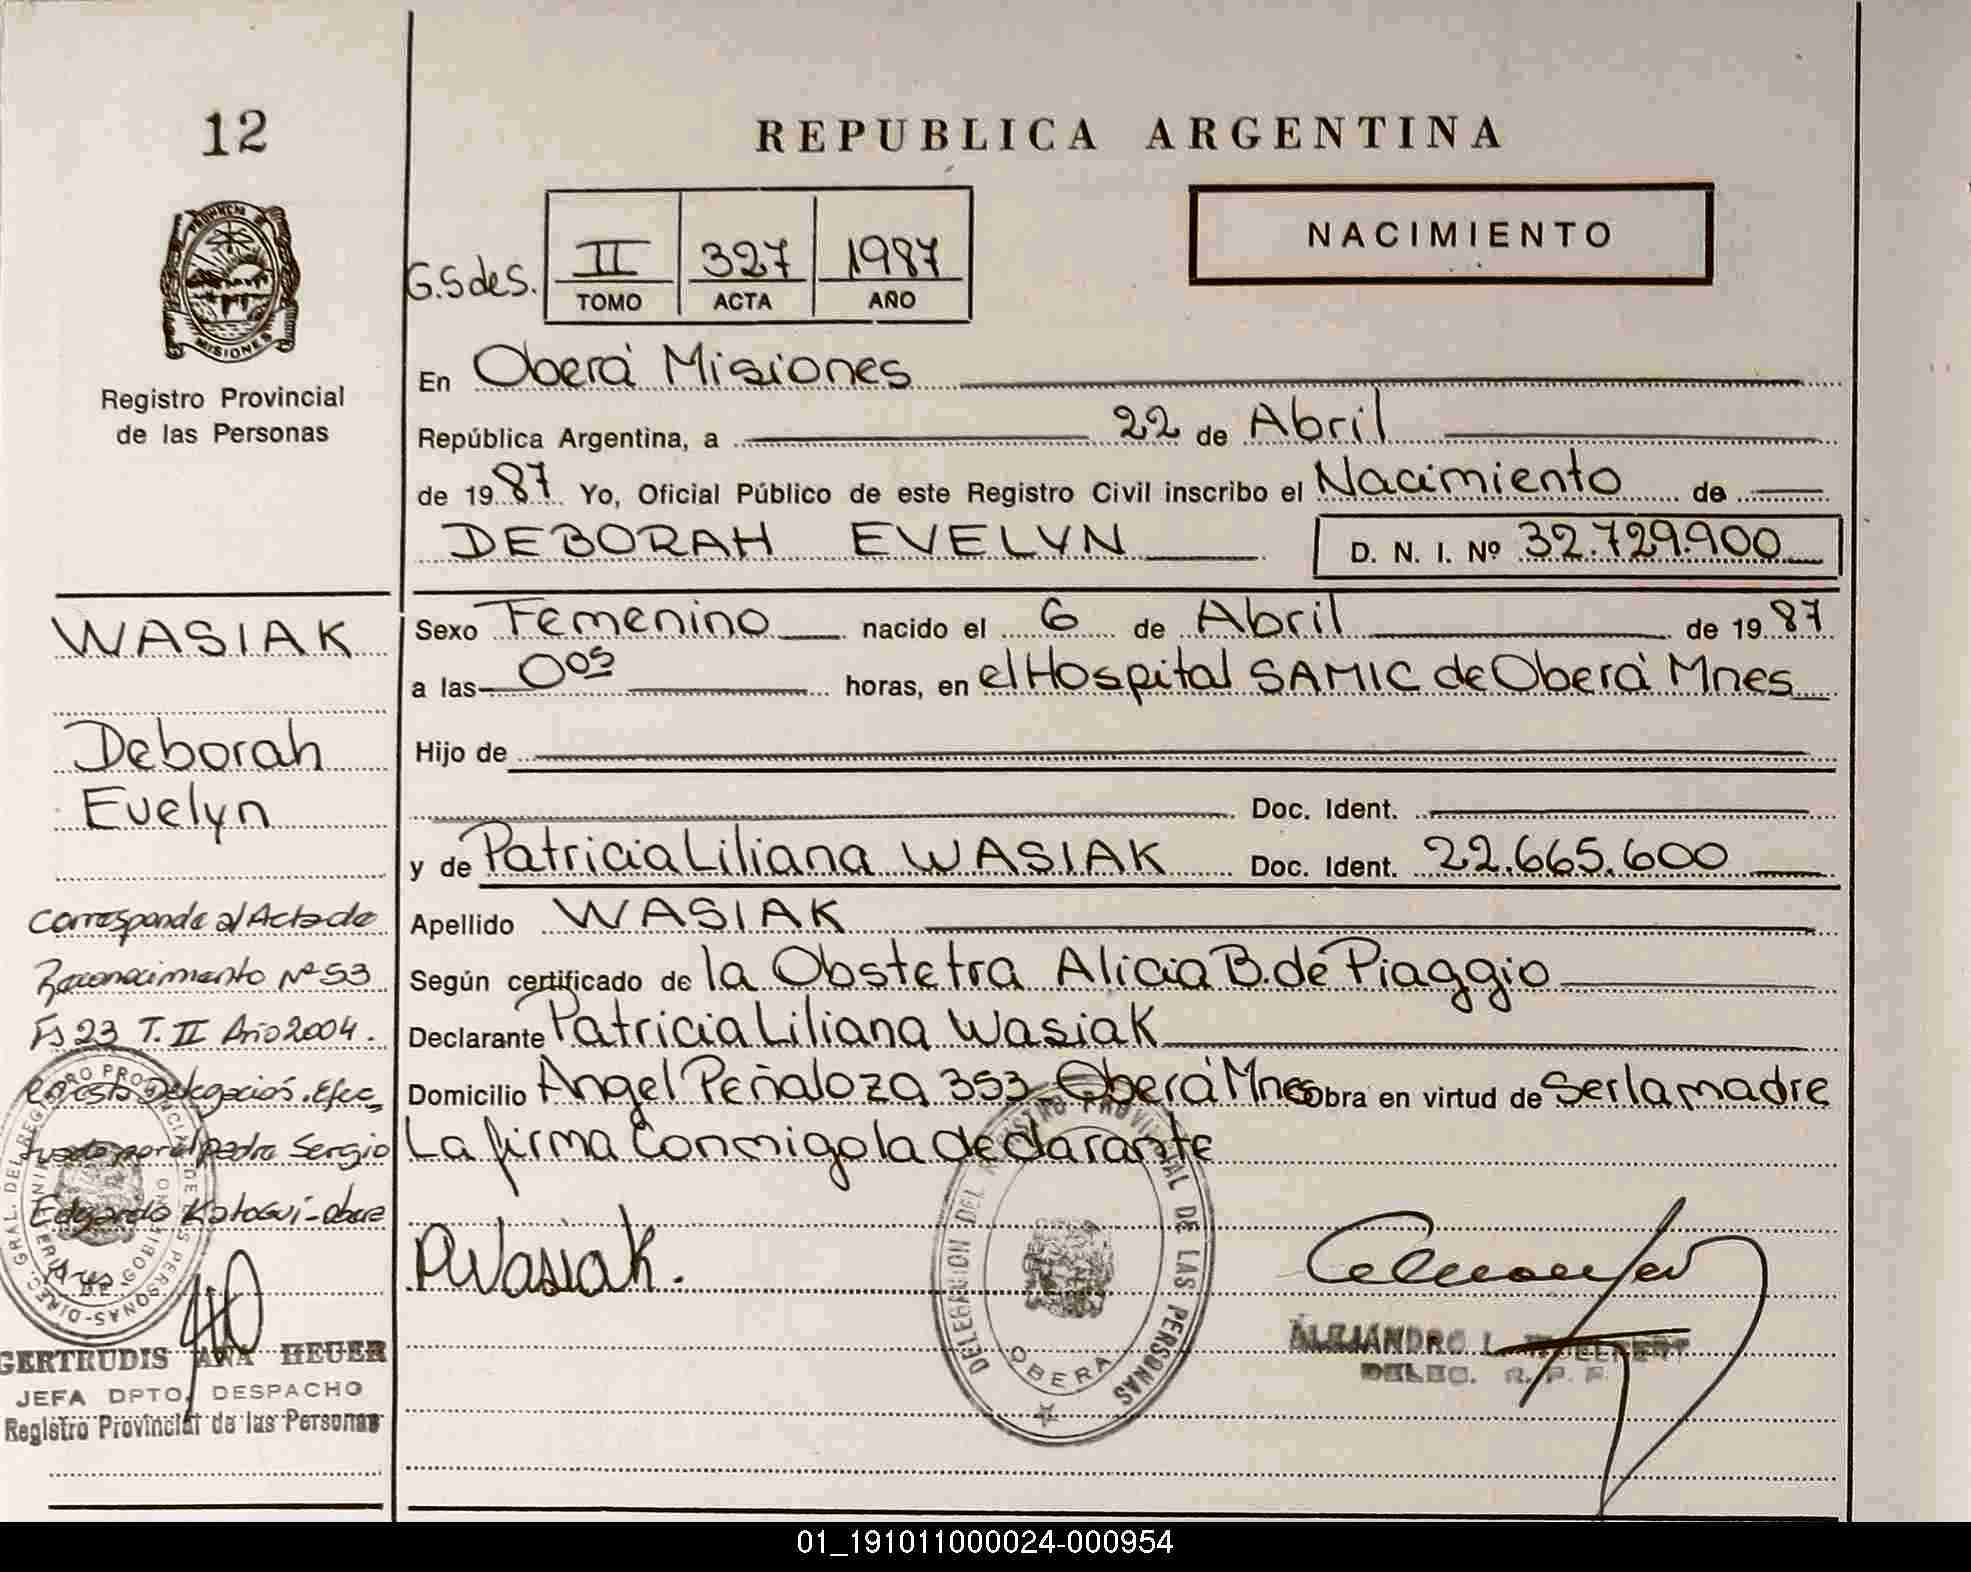 12
PROVINCIA DE
MISIONES
Registro Provincial
de las Personas
REPUBLICA ARGENTINA
NACIMIENTO
G.S des. II 327 1987
TOMO ACTA AÑO
En Oberá Misiones
República Argentina, a 22 de Abril
de 1987 Yo, Oficial Público de este Registro Civil inscribo el Nacimiento de
DEBORAH EVELYN D. N. I. Nº 32.729.900
Sexo Femenino nacido el 6 de Abril de 1987
a las 0 05 horas, en el Hospital SAMIC de Oberá Mnes
Hijo de
Doc. Ident.
y de Patricia Liliana WASIAK Doc. Ident. 22.665.600
Apellido WASIAK
Según certificado de la Obstetra Alicia B. de Piaggio
Declarante Patricia Liliana Wasiak
Domicilio Angel Peñaloza 353 Oberá Mnes Obra en virtud de Ser la madre
La firma Conmigo la declarante
PWasiak.
DELEGACION DEL REGISTRO PROVINCIAL DE LAS PERSONAS
OBERA
ALEJANDRO L.
DELEG. R. P. P.
WASIAK
Deborah
Evelyn
Corresponde al Acta de
Reconocimiento Nº 53
Fs 23 T. II Año 2004.
esta Delegación. Efec
tuado por el padre Sergio
Edgardo
DIREC. GRAL. DEL REGISTRO PROVINCIAL DE LAS PERSONAS
GERTRUDIS ANA HEUER
JEFA DPTO. DESPACHO
Registro Provincial de las Personas
01_191011000024-000954